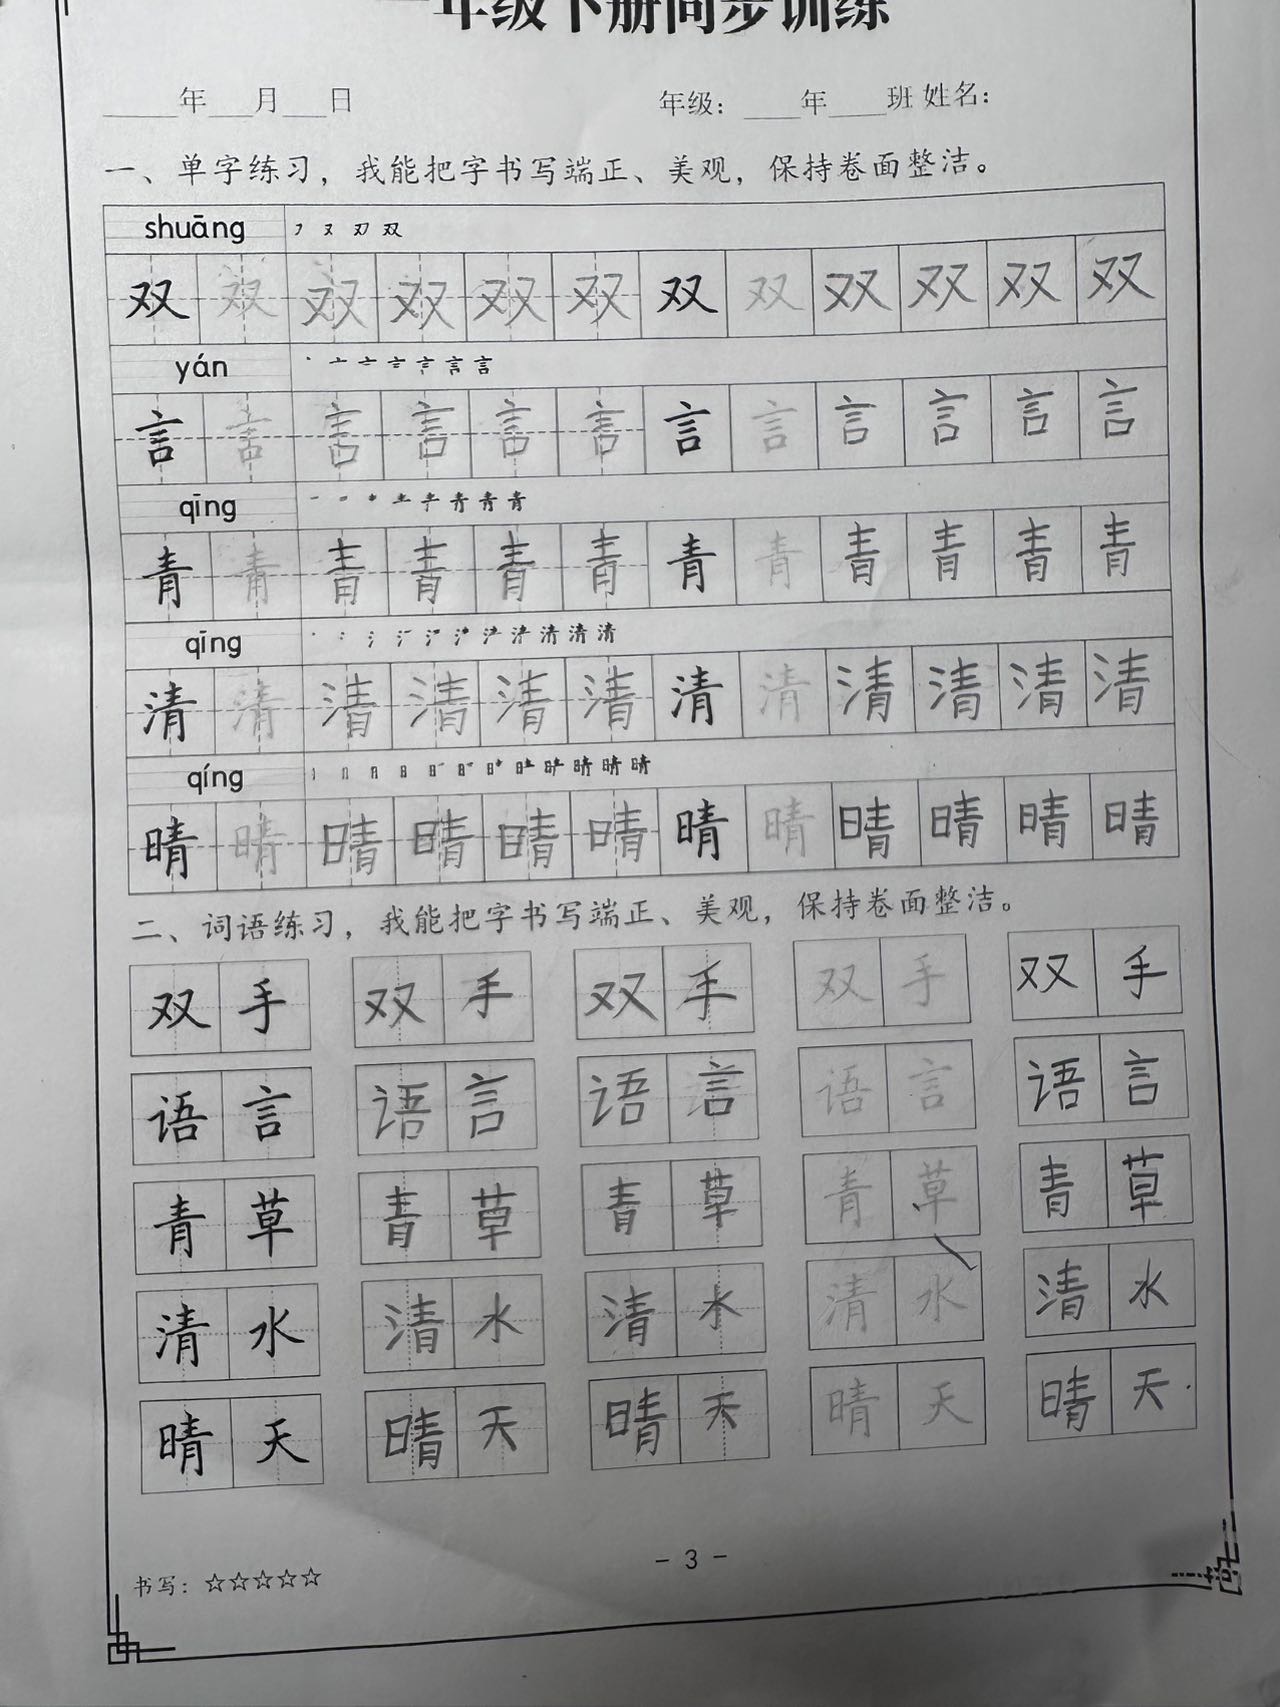 一年级下册同步训练
____年___月___日 年级：____年____班 姓名：
一、单字练习，我能把字书写端正、美观，保持卷面整洁。
shuāng 双
双 双 双 双 双 双 双 双 双 双 双 双
yán 言
言 言 言 言 言 言 言 言 言 言 言 言
qīng 青
青 青 青 青 青 青 青 青 青 青 青 青
qīng 清
清 清 清 清 清 清 清 清 清 清 清 清
qíng 晴
晴 晴 晴 晴 晴 晴 晴 晴 晴 晴 晴 晴
二、词语练习，我能把字书写端正、美观，保持卷面整洁。
双手 双手 双手 双手 双手
语言 语言 语言 语言 语言
青草 青草 青草 青草 青草
清水 清水 清水 清水 清水
晴天 晴天 晴天 晴天 晴天
书写：☆☆☆☆☆
- 3 -